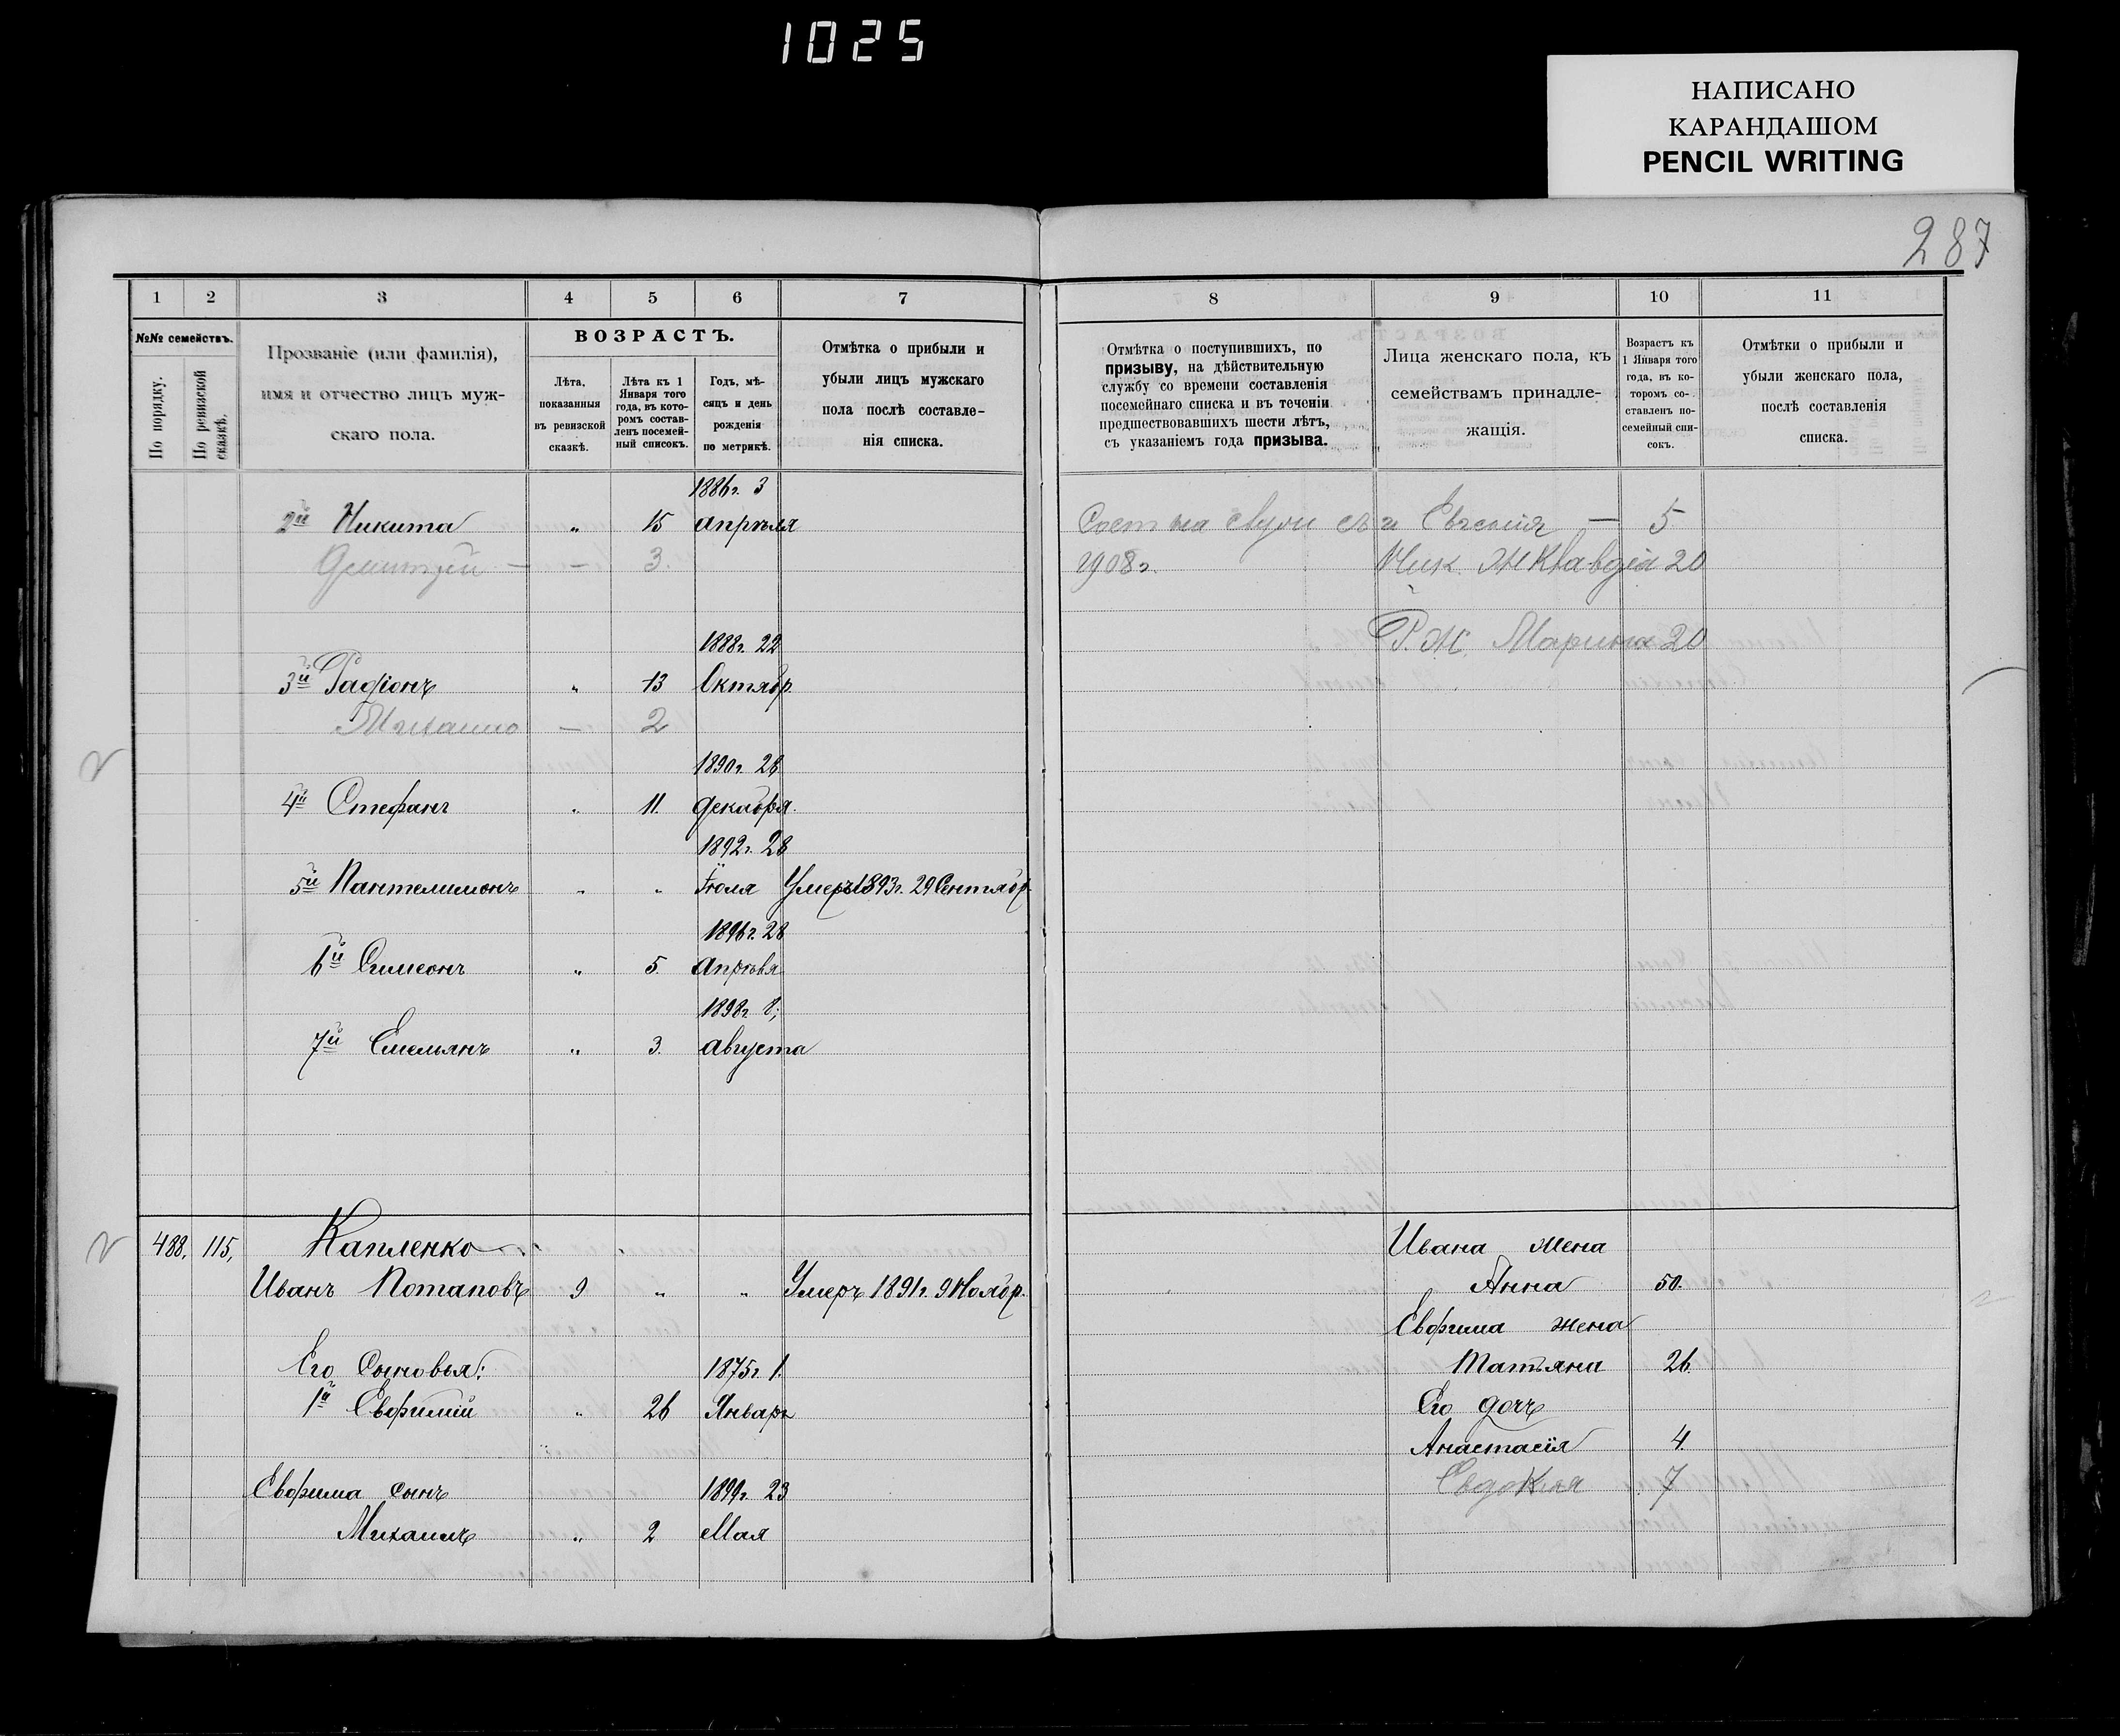 1025
НАПИСАНО
КАРАНДАШОМ
PENCIL WRITING
287
1 2 3 4 5 6 7 8 9 10 11
№№ семействъ.
По порядку.
По ревизской сказкѣ.
Прозваніе (или фамилія),
имя и отчество лицъ муж-
скаго пола.
ВОЗРАСТЪ.
Лѣта,
показанныя
въ ревизской
сказкѣ.
Лѣта къ 1
Января того
года, въ кото-
ромъ состав-
ленъ посемей-
ный списокъ.
Годъ, мѣ-
сяцъ и день
рожденія
по метрикѣ.
Отмѣтка о прибыли и
убыли лицъ мужскаго
пола послѣ составле-
нія списка.
Отмѣтка о поступившихъ, по
призыву, на дѣйствительную
службу со времени составленія
посемейнаго списка и въ теченіи
предшествовавшихъ шести лѣтъ,
съ указаніемъ года призыва.
Лица женскаго пола, къ
семействамъ принадле-
жащія.
Возрастъ къ
1 Января того
года, въ ко-
торомъ со-
ставленъ по-
семейный спи-
сокъ.
Отмѣтки о прибыли и
убыли женскаго пола,
послѣ составленія
списка.
1886г. 3
2й Никита " 15 апрѣля
— 5
— 3.
1908г.
Ник. Ж Клавдія 20
Р. Ж. Марина 20
1888г. 22
3й Радіонъ " 13 Октябр.
Михаило — 2
1890г. 26
4й Стефанъ " 11. декабря.
1892г. 28
5й Пантелимонъ " " Іюля Умеръ 1893г. 29 Сентябр.
1896г. 28
6й Симеонъ " 5. апрѣля
1898г. 8;
7й Емельянъ " 3. августа
488. 115. Капленко
Ивана жена
Иванъ Потаповъ 9 " " Умеръ 1891г. 9 Ноябр.
Анна 50.
Евфима жена
Его сыновья: 1875г. 1.
Татьяна 26.
1й Евфимій " 26 Января
Его дочь
Анастасія 4.
Евфима сынъ 1899г. 23
Евдокія 7
Михаилъ " 2 Мая